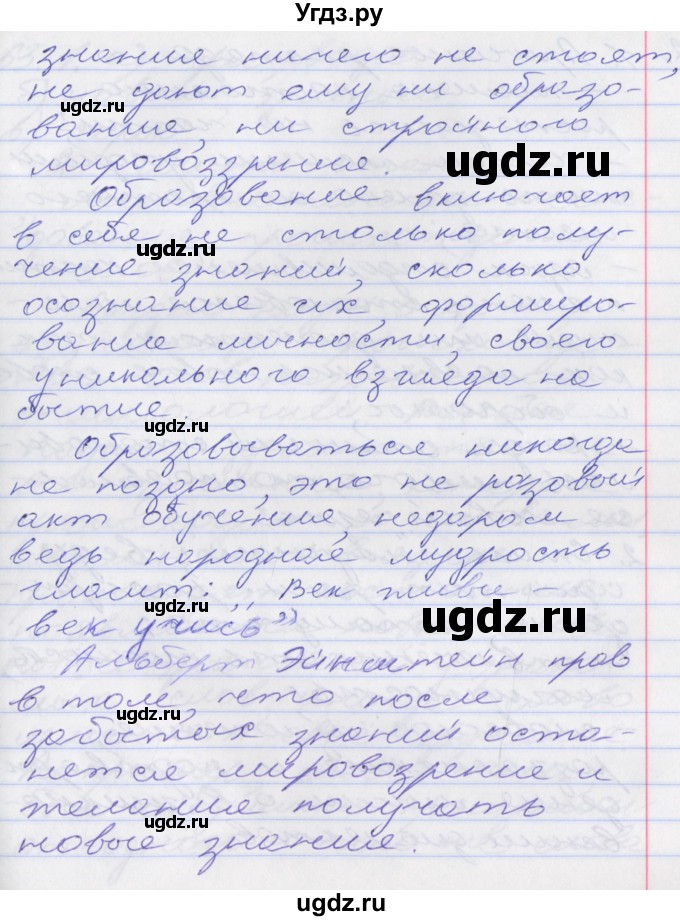 Угдз.ру
знания ничего не стоят,
не дают ему ни образо-
ugdz.ru
вание, ни стройного
ugdz.ru
мировоззрения.
Образование включает
в себя не столько полу-
ugdz.ru
чение знаний, сколько
осознание их, формиро-
вание личности, своего
уникального взгляда на
бытие.
Образовываться никогда
не поздно, это не разовый
акт обучения, недаром
ведь народная мудрость
гласит: Век живи -
ugdz.ru ugdz.ru
век учись"
Альберт Эйнштейн прав
в том, что после
ugdz.ru
забытых знаний оста-
нется мировозрение и
желание получать
ugdz.ru
новые знания.
ugdz.ru